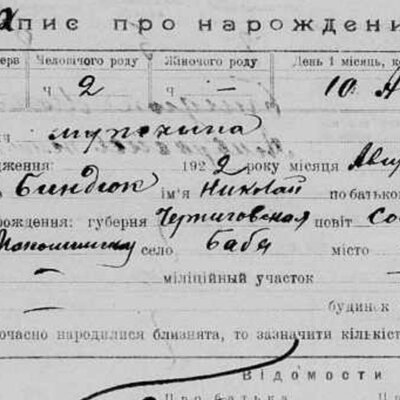 пис про нарожден
ера Человічого роду Жіночого роду День і місяць, к
ч 2 ч — 10 А
ч мужчина
дження: 1922 року місяця Авгу
Биндюк ім'я Николай по батьков
рождення: губерня Черниговская повіт Со
село Баба місто
— міліційний участок —
— будинок
очасно народилися близнята, то зазначити кількіст
Відомости
Про батька